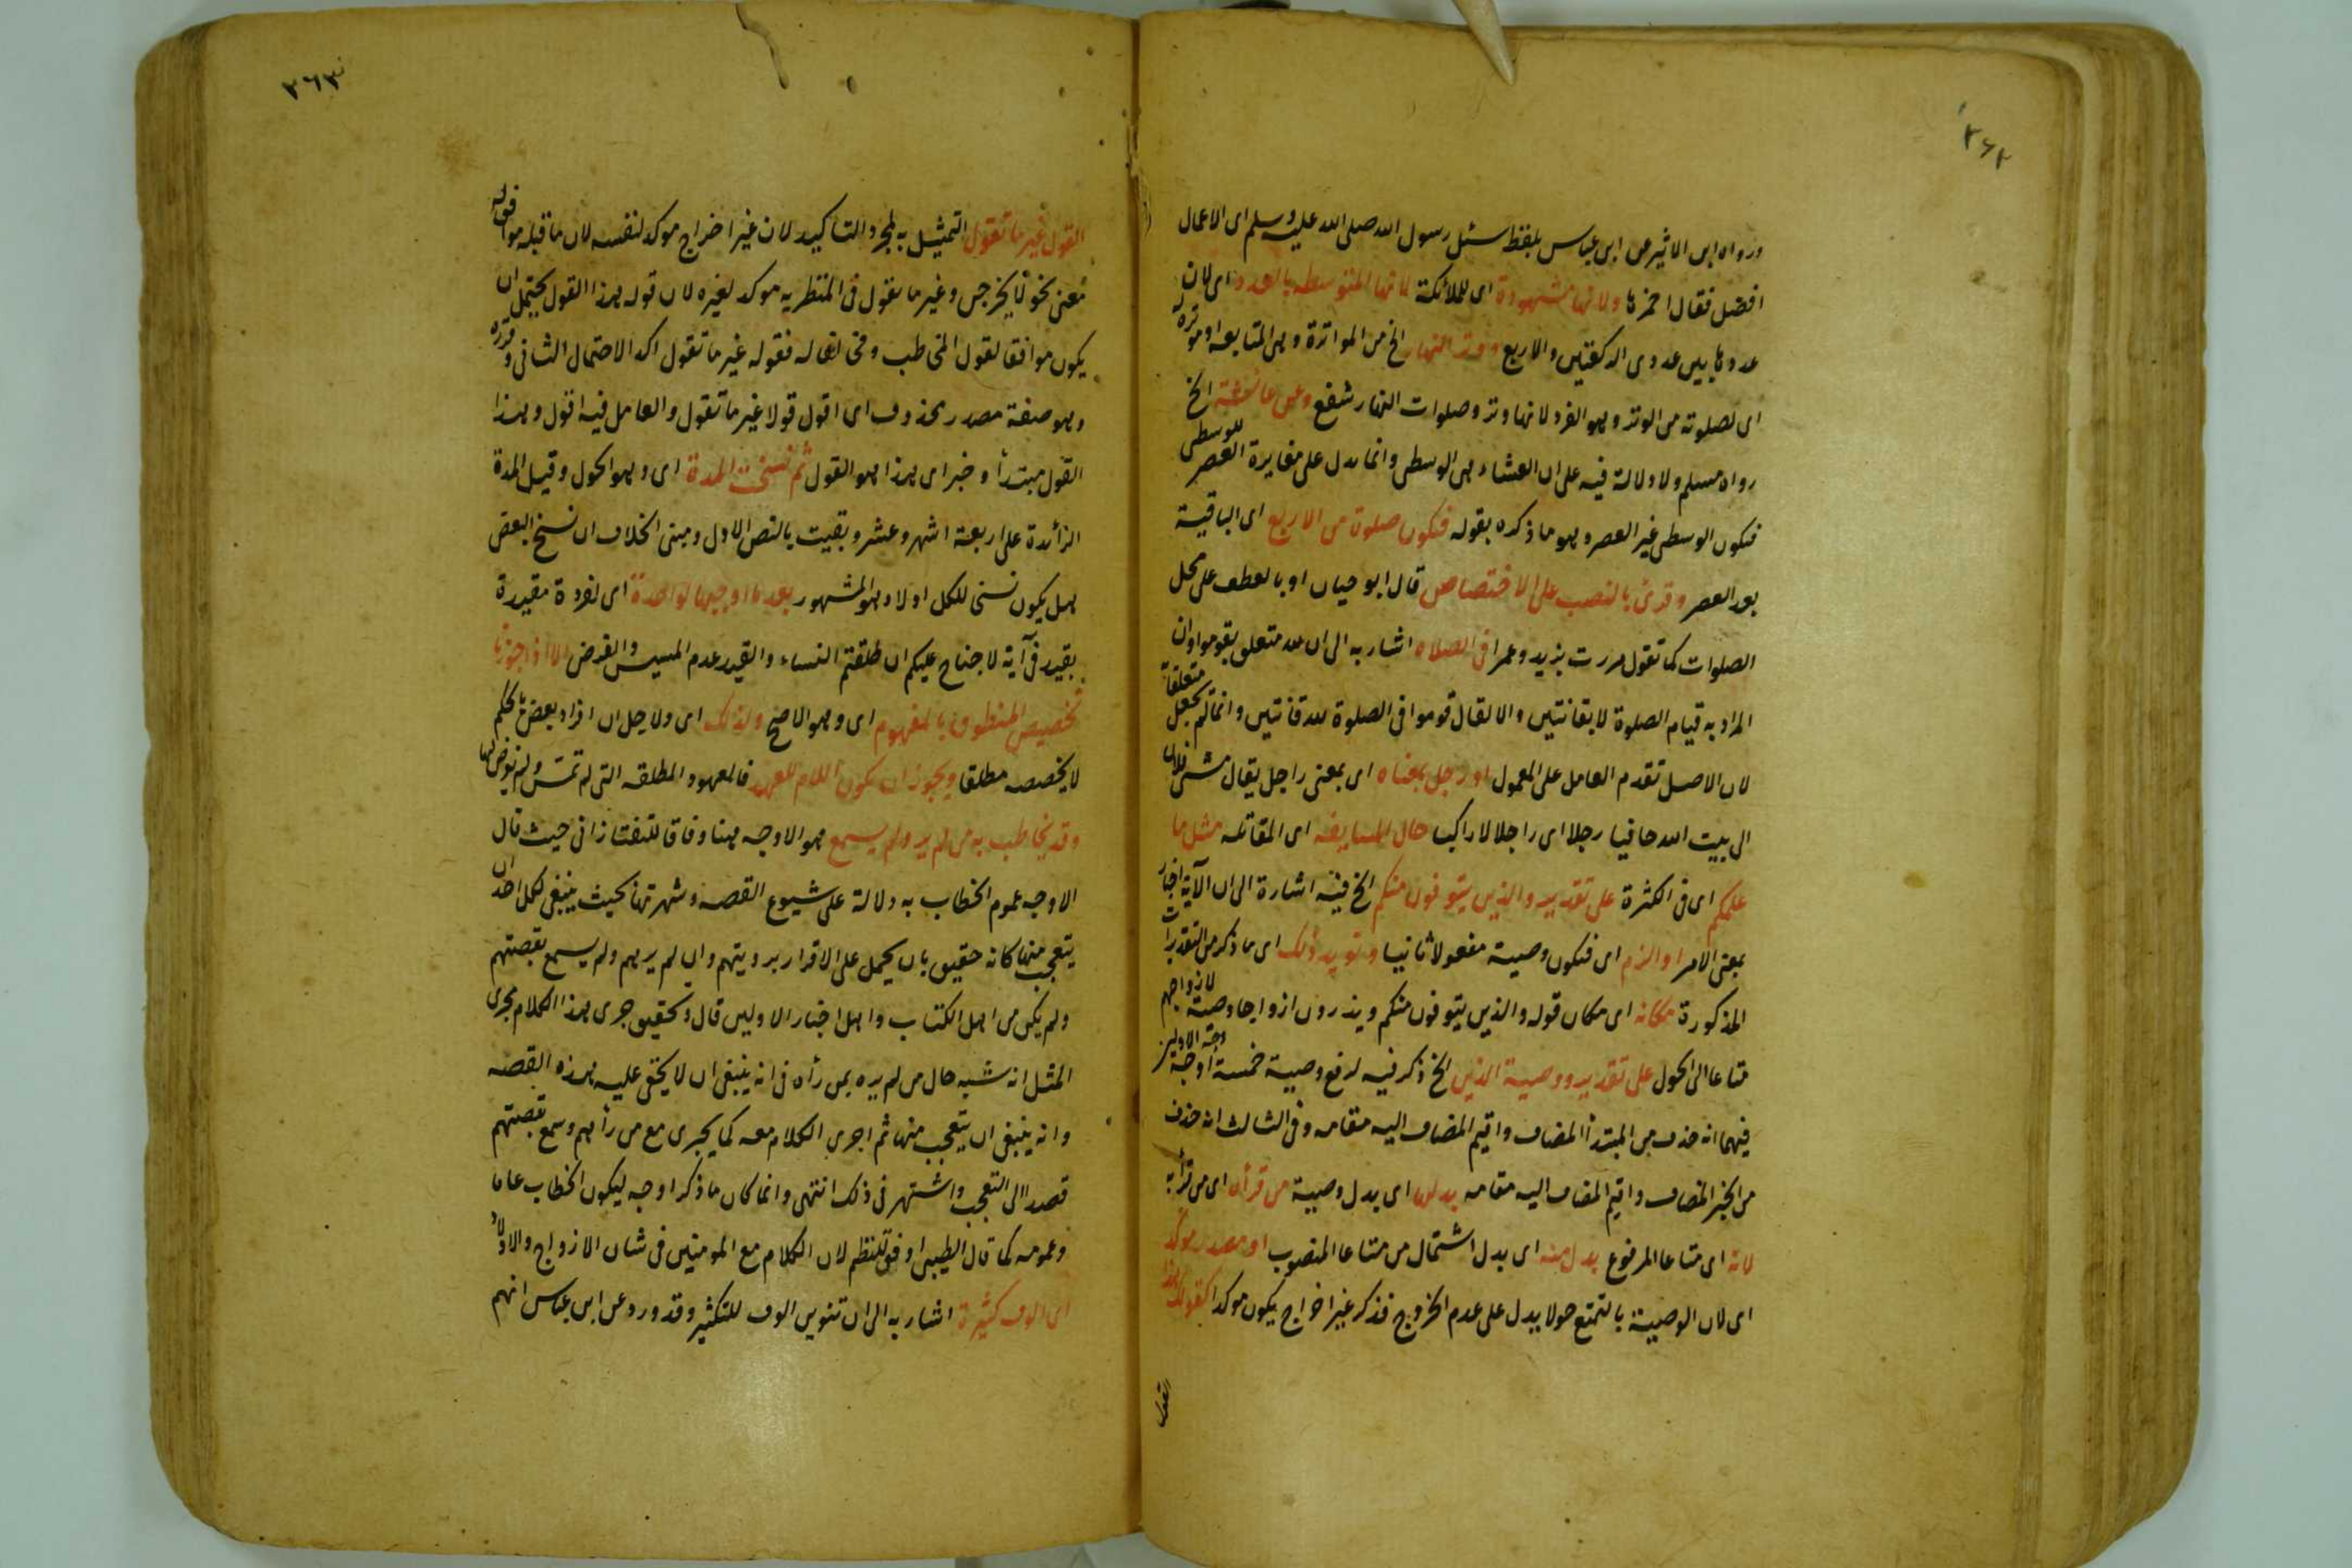 ٢٦٢
ورواه ابن الاثير عن ابن عباس بلفظ سئل رسول الله صلى الله عليه وسلم اى الاعمال
افضل فقال احمزها ولانها مشهودة اى للملائكة لانها المتوسطه بالعدد اى لان
عددها بين عددى الركعتين والاربع ووتر النهار الخ من المواترة وهى المتابعه او موترة
اى لصلوته من الوتر وهو الفرد لانها وتر وصلوات النهار شفع وعن عائشة الخ
رواه مسلم ولا دلالة فيه على ان العشاء هى الوسطى وانما يدل على مغايرة العصر للوسطى
فتكون الوسطى غير العصر وهو ما ذكره بقوله فتكون صلوة من الاربع اى الباقية
بعد العصر وقرئ بالنصب على الاختصاص قال ابو حيان او بالعطف على محل
الصلوات كما تقول مررت بزيد وعمرا فى الصلاه اشار به الى ان لله متعلق بقوموا وان
المراد به قيام الصلوة لا بقانتين والا لقال قوموا فى الصلوة لله قانتين وانما لم يجعل متعلقا به
لان الاصل تقدم العامل على المعمول او رجل بمعناه اى بمعنى راجل يقال مشى فلان
الى بيت الله حافيا رجلا اى راجلا لا راكبا حال المسايفه اى المقاتله مثل ما
علمكم اى فى الكثرة على تقدير والذين يتوفون منكم الخ فيه اشارة الى ان الآية اخبار
بمعنى الامر او الزم اى فتكون وصية مفعولا ثانيا ويؤيد ذلك اى ما ذكر من التقديرات
المذكورة مكانه اى مكان قوله والذين يتوفون منكم ويذرون ازواجا وصية لازواجهم
متاعا الى الحول على تقدير ووصية الذين الخ ذكر فيه لرفع وصية خمسة اوجه وجه الاولين
فيهما انه حذف من المبتدأ المضاف واقيم المضاف اليه مقامه وفى الثالث انه حذف
من الخبر المضاف واقيم المضاف اليه مقامه بدلها اى بدل وصية من قرأ اى من قرأ به
لانه اى متاعا المرفوع بدل منه اى بدل اشتمال من متاعا المنصوب او مصدر موكد
اى لان الوصية بالتمتع حولا يدل على عدم الخروج فذكر غير اخراج يكون موكدا كقولك هذا
القول
٣٦٣
القول غير ما تقول التمثيل به لمجرد التأكيد لان غير اخراج موكد لنفسه لان ما قبله موافق له
معنى نحو لا يخرجن وغير ما تقول فى المنظر به موكد لغيره لان قوله هذا القول يحتمل ان
يكون موافقا لقول المخاطب ومخالفا له فقوله غير ما تقول اكد الاحتمال الثانى وقرره
وهو صفة مصدر محذوف اى اقول قولا غير ما تقول والعامل فيه اقول وهذا
القول مبتدأ وخبر اى هذا هو القول ثم نسخت المدة اى وهو الحول وقيل المدة
الزائدة على اربعة اشهر وعشر وبقيت بالنص الاول ومبنى الخلاف ان نسخ البعض
هل يكون نسخا للكل او لا وهو المشهور بعد ما اوجبها لواحدة اى لفردة مقيدة
بقيد فى آية لا جناح عليكم ان طلقتم النساء والقيد عدم المسيس والفرض الا اذا جوزنا
تخصيص المنطوق بالمفهوم اى وهو الاصح ولذلك اى ولاجل ان افراد بعض بالحكم
لا يخصصه مطلقا ويجوز ان يكون اللام للعهد فالمعهود المطلقه التى لم تمس ولم يفرض لها
وقد يخاطب به من لم ير ولم يسمع هو الاوجه هنا وفاقا للتفتازانى حيث قال
الاوجه عموم الخطاب به دلالة على شيوع القصه وشهرتها بحيث ينبغى لكل احد ان
يتعجب منها كانه حقيق بان يحمل على الاقرار برويتهم وان لم يرهم ولم يسمع بقصتهم
ولم يكن من اهل الكتاب واهل اخبار الاولين قال وتحقيق جرى هذا الكلام مجرى
المثل انه شبه حال من لم يره بمن رأه فى انه ينبغى ان لا يخفى عليه هذه القصه
وانه ينبغى ان يتعجب منها ثم اجرى الكلام معه كما يجرى مع من رأهم وسمع بقصتهم
قصدا الى التعجب واشتهر فى ذلك انتهى وانما كان ما ذكر اوجه ليكون الخطاب عاما
وعمومه كما قال الطيبى اوفق للنظم لان الكلام مع المومنين فى شان الازواج والاولاد
اى الوف كثيرة اشار به الى ان تنوين الوف للتكثير وقد ورد عن ابن عباس انهم